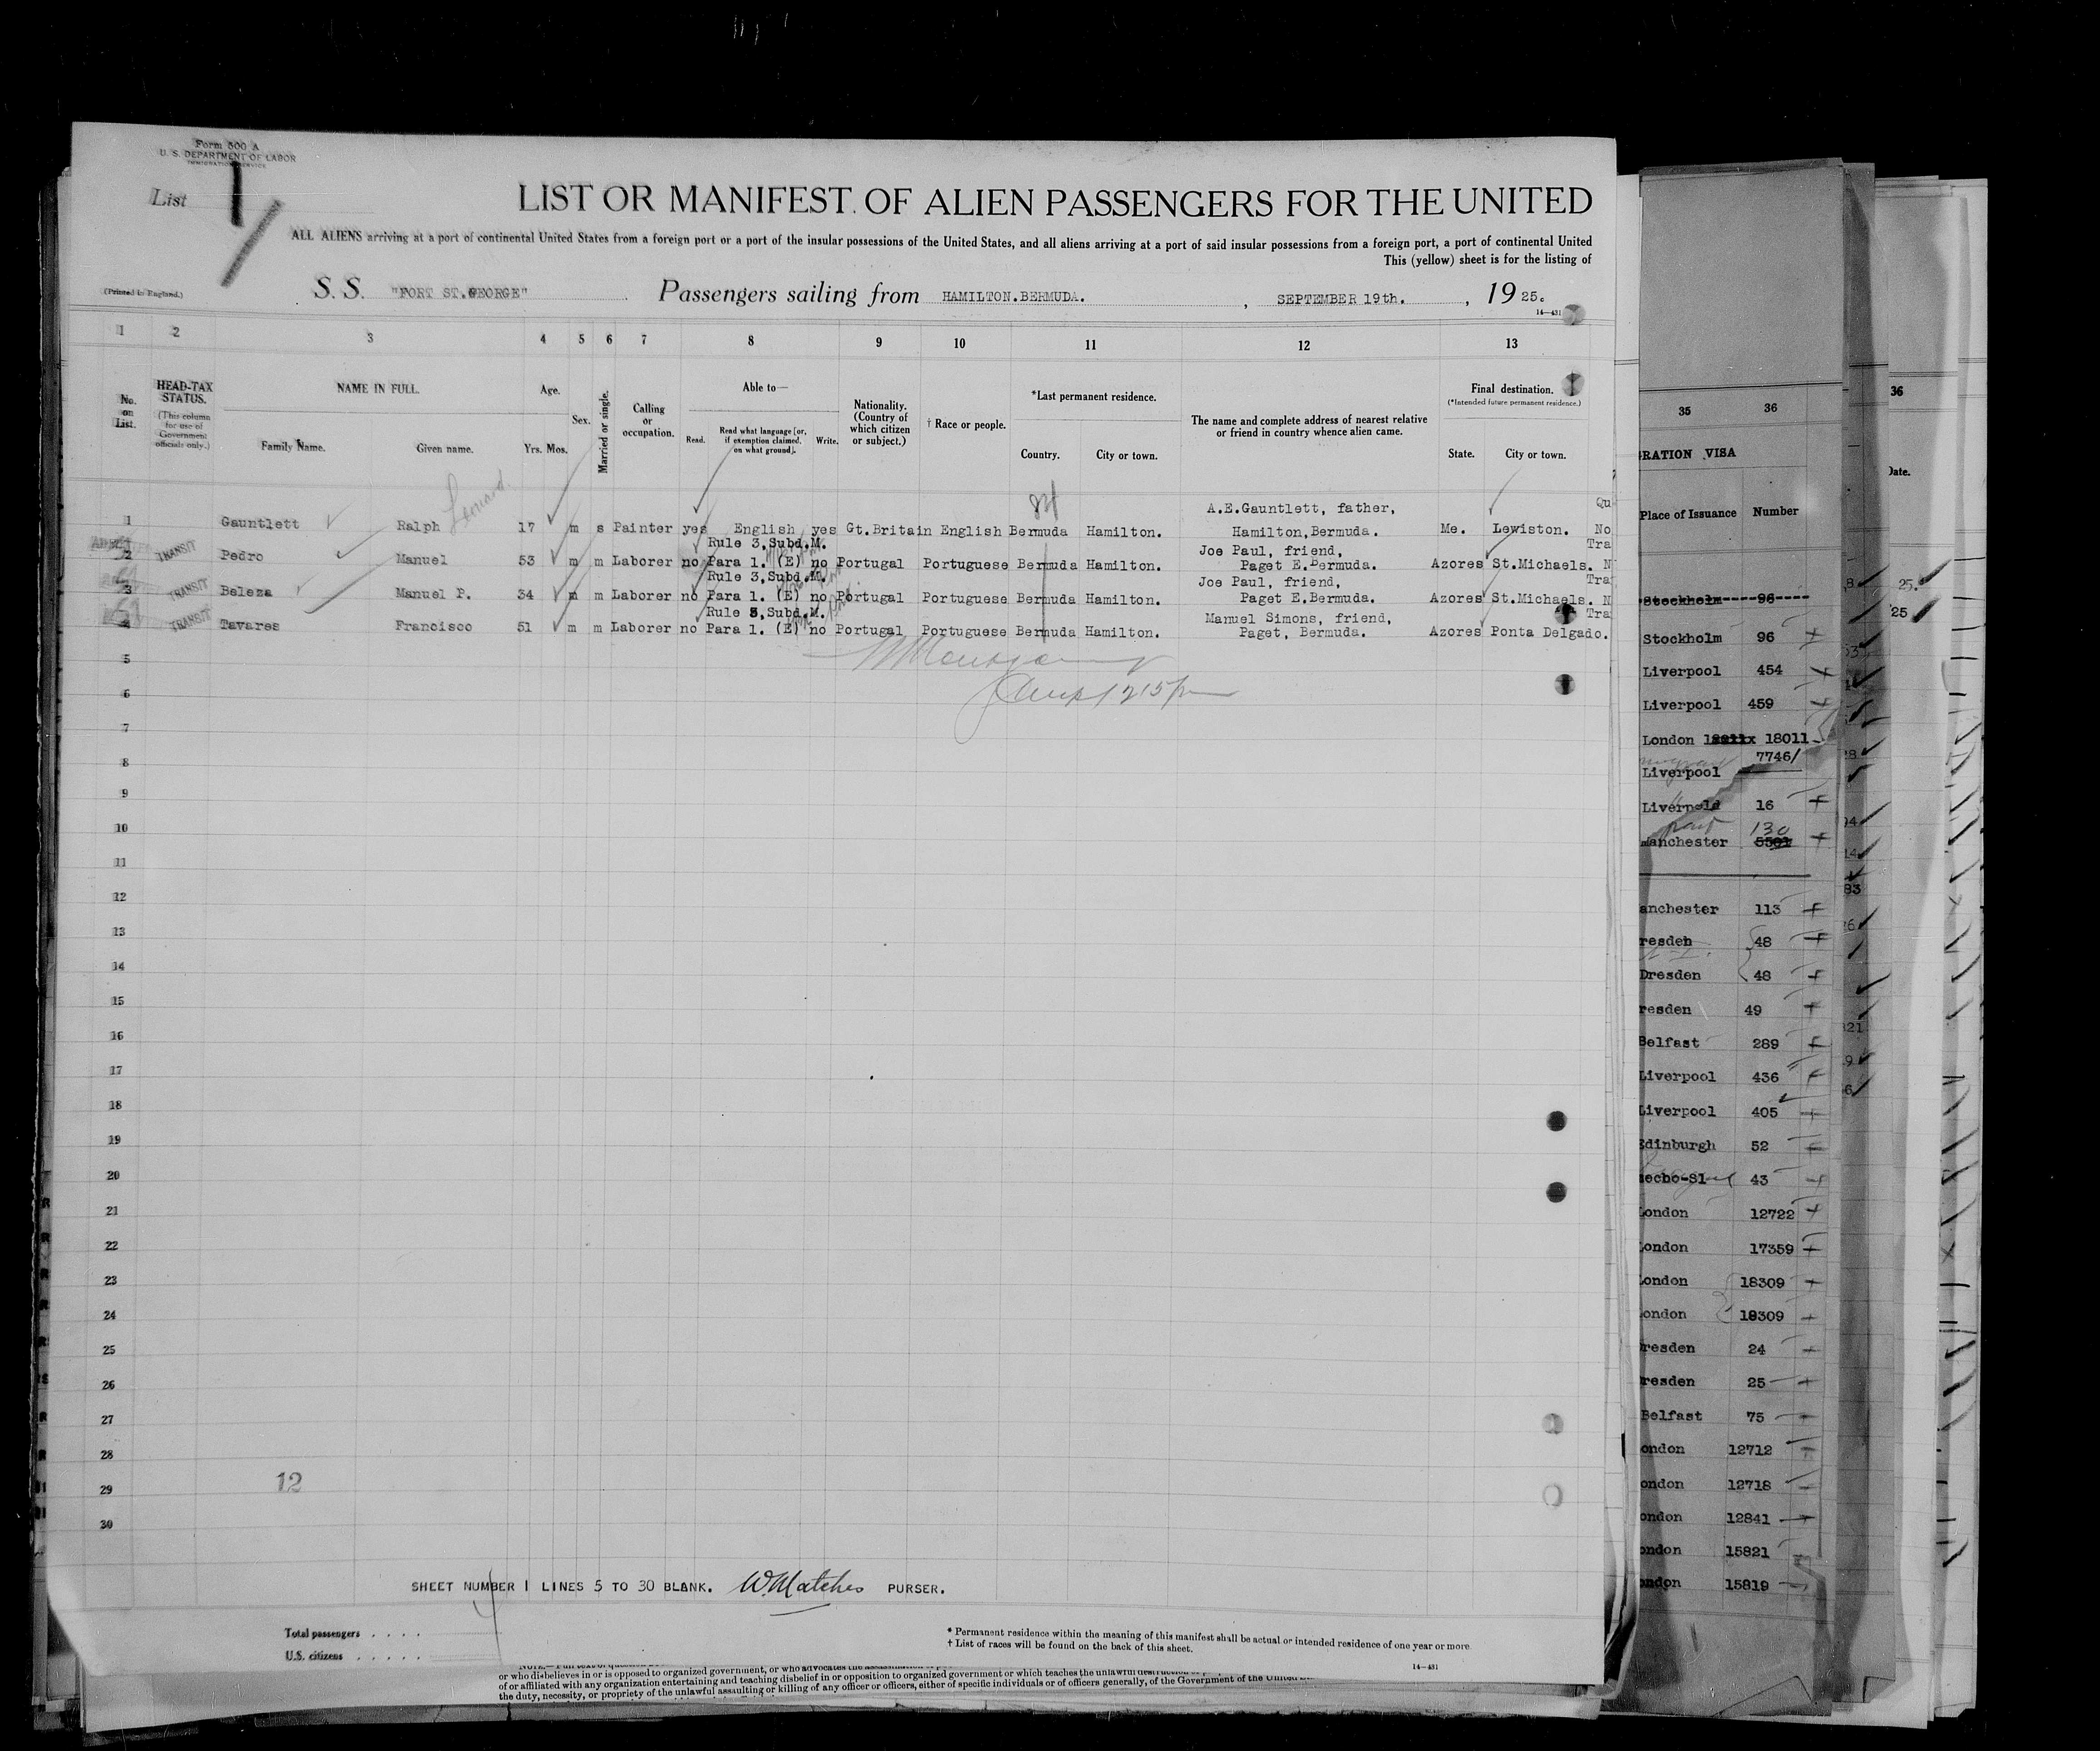 Form 500 A
U. S. DEPARTMENT OF LABOR
IMMIGRATION SERVICE
List 1
LIST OR MANIFEST OF ALIEN PASSENGERS FOR THE UNITED
ALL ALIENS arriving at a port of continental United States from a foreign port or a port of the insular possessions of the United States, and all aliens arriving at a port of said insular possessions from a foreign port, a port of continental United
This (yellow) sheet is for the listing of
(Printed in England.)
S. S. "FORT ST.GEORGE" Passengers sailing from HAMILTON.BERMUDA. , SEPTEMBER 19th. , 19 25.
14—431
1 2 3 4 5 6 7 8 9 10 11 12 13
No. on List.
HEAD-TAX STATUS.
(This column for use of Government officials only.)
NAME IN FULL.
Family Name. Given name.
Age.
Yrs. Mos.
Sex.
Married or single.
Calling or occupation.
Able to—
Read. Read what language [or, if exemption claimed, on what ground]. Write.
Nationality. (Country of which citizen or subject.)
† Race or people.
*Last permanent residence.
Country. City or town.
The name and complete address of nearest relative or friend in country whence alien came.
Final destination.
(*Intended future permanent residence.)
State. City or town.
Leonard
84
A.E.Gauntlett, father, Qu
1 Gauntlett Ralph 17 m s Painter yes English yes Gt.Britain English Bermuda Hamilton. Hamilton,Bermuda. Me. Lewiston. No
Rule 3,Subd.M. Joe Paul, friend, Tra
2 TRANSIT Pedro Manuel 53 m m Laborer no Para 1. (E) no Portugal Portuguese Bermuda Hamilton. Paget E.Bermuda. Azores St.Michaels. N
Rule 3,Subd.M. Joe Paul, friend, Tra
3 TRANSIT Beleza Manuel P. 34 m m Laborer no Para 1. (E) no Portugal Portuguese Bermuda Hamilton. Paget E.Bermuda. Azores St.Michaels. N
Rule 3,Subd.M. Manuel Simons, friend, Tra
4 TRANSIT Tavares Francisco 51 m m Laborer no Para 1. (E) no Portugal Portuguese Bermuda Hamilton. Paget, Bermuda. Azores Ponta Delgado.
5
6
7
8
9
10
11
12
13
14
15
16
17
18
19
20
21
22
23
24
25
26
27
28
29
30
12
SHEET NUMBER 1 LINES 5 TO 30 BLANK. W Matches PURSER.
Total passengers . . . .
U.S. citizens . . . . .
* Permanent residence within the meaning of this manifest shall be actual or intended residence of one year or more.
† List of races will be found on the back of this sheet.
14—431
or who disbelieves in or is opposed to organized government, or who advocates the
of or affiliated with any organization entertaining and teaching disbelief in or opposition to organized government or which teaches the unlawful
the duty, necessity, or propriety of the unlawful assaulting or killing of any officer or officers, either of specific individuals or of officers generally, of the Government of the United
35 36
RATION VISA
Place of Issuance Number
Stockholm 96
Stockholm 96
Liverpool 454
Liverpool 459
London 18011
7746/
Liverpool
Liverpold 16
130
anchester
anchester 113
resden 48
Dresden 48
resden 49
Belfast 289
Liverpool 436
Liverpool 405
Edinburgh 52
echo-Sl 43
London 12722
London 17359
London 18309
ondon 18309
resden 24
resden 25
Belfast 75
ondon 12712
ondon 12718
ondon 12841
ondon 15821
ondon 15819
36
Date.
25.
25